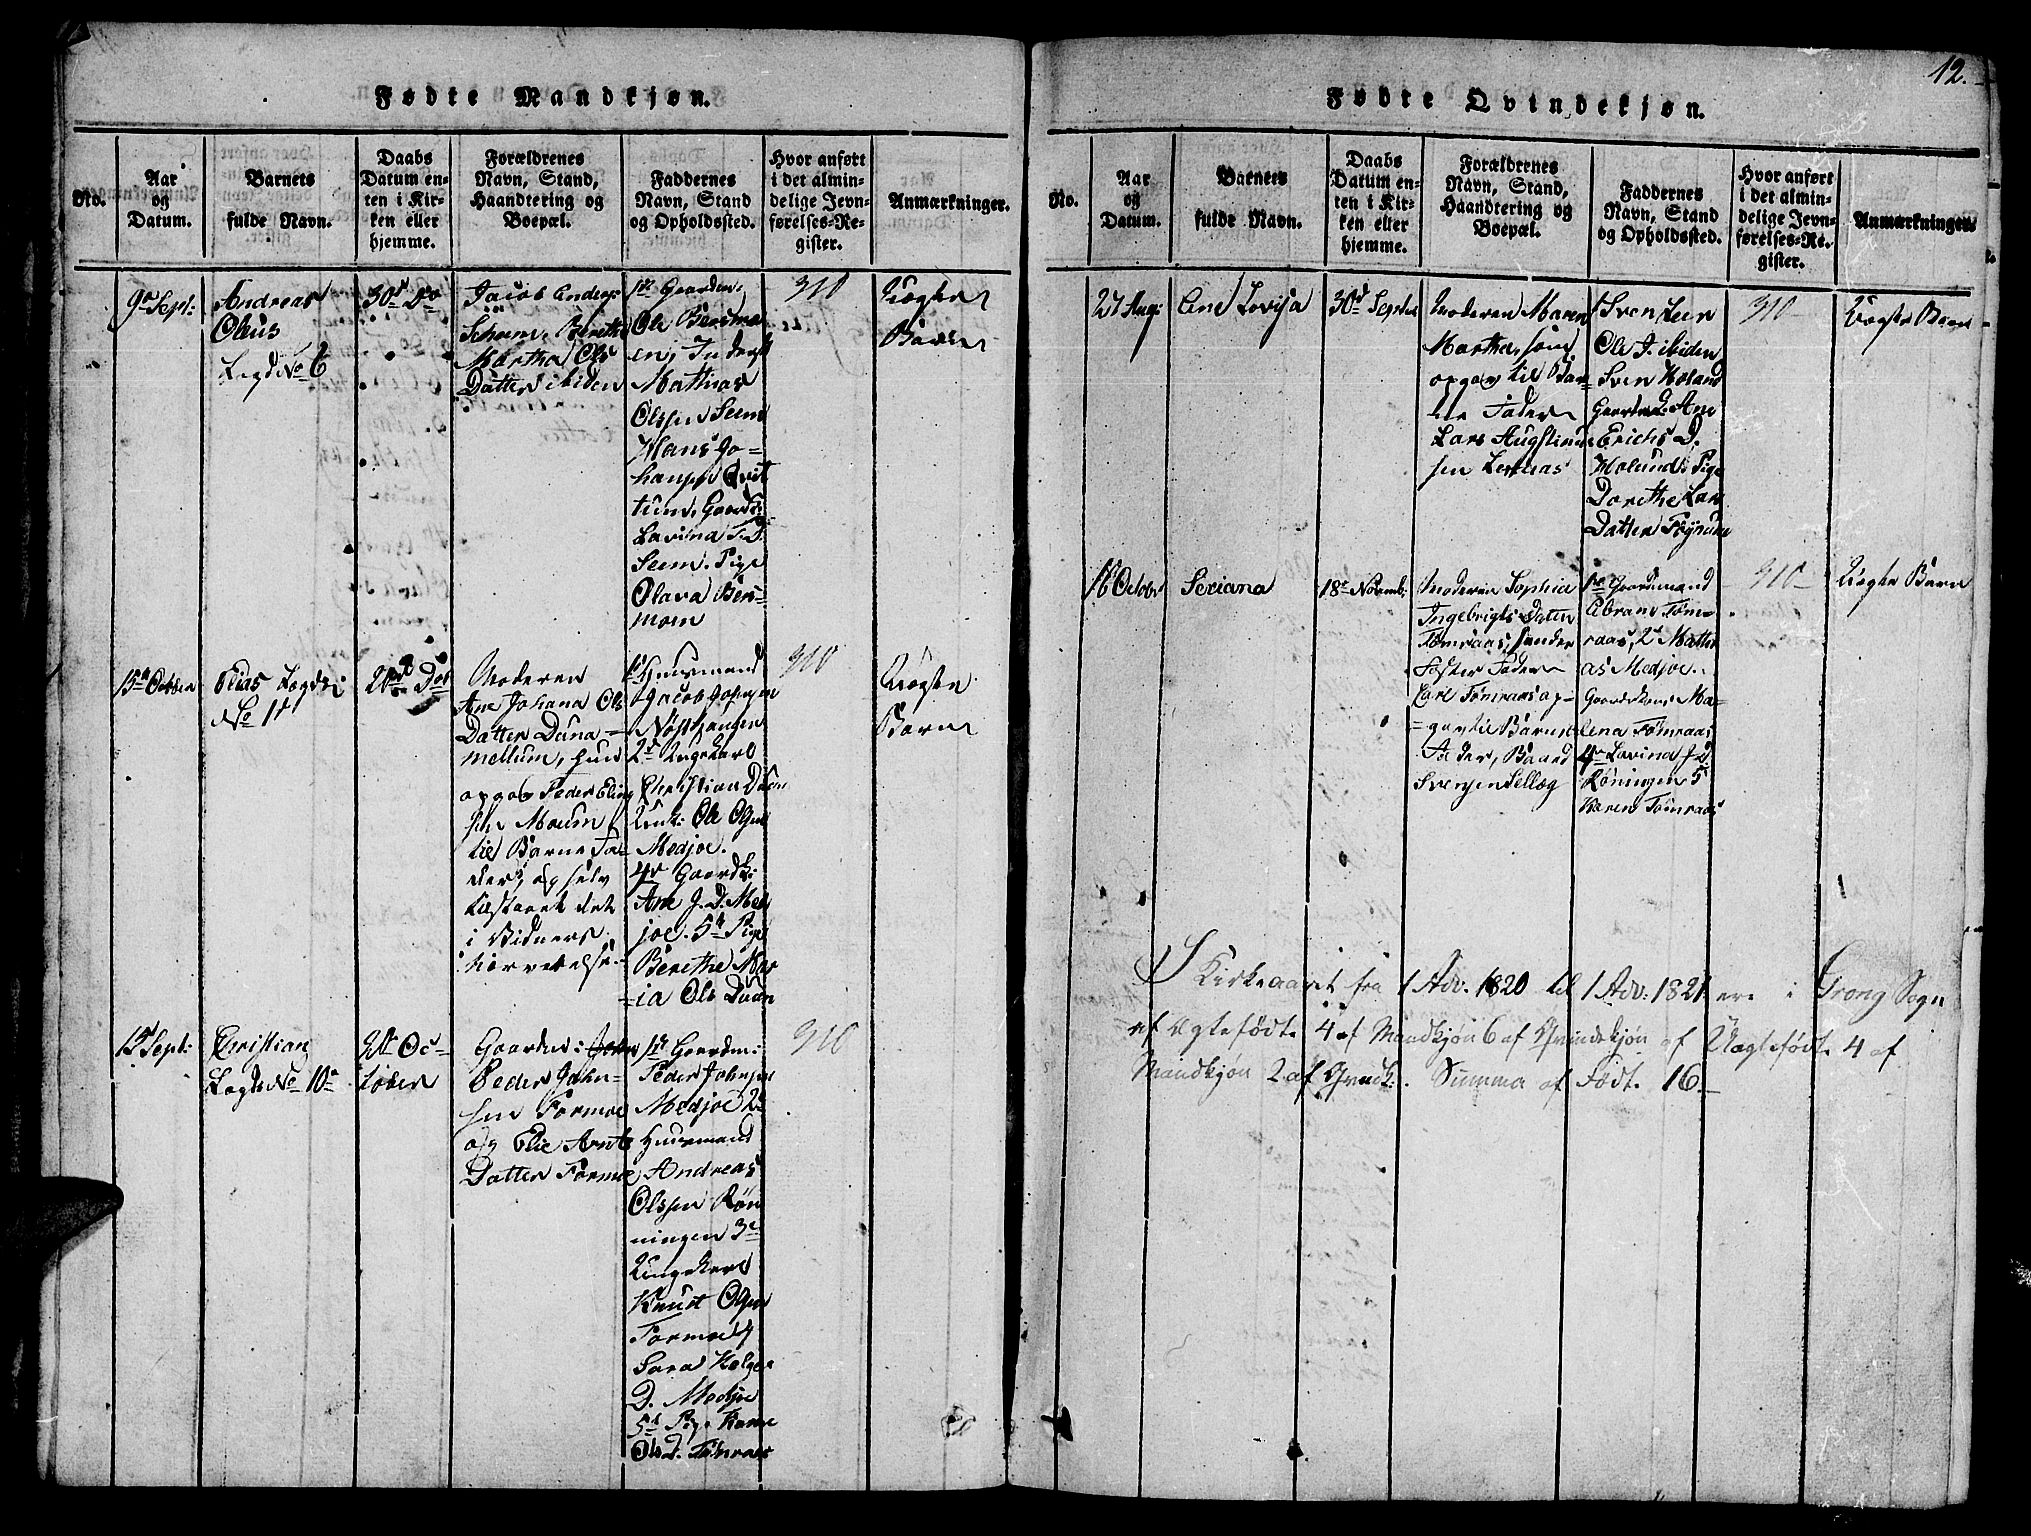 12.
Fødte Mandkjøn.
No.
Aar
og
Datum.
Barnets
fulde Navn.
Daabs
Datum en-
ten i Kir-
ken eller
hjemme.
Forældrenes
Navn, Stand,
Haandtering og
Boepæl.
Faddernes
Navn, Stand
og Opholdssted.
Hvor anført
i det almin-
delige Jevn-
førelses-Re-
gister.
Anmærkninger.
9de Sept:
Andreas
Olaus
Lægds No 6
30d Do
Jacob Anders:
Seem, Berethe
Martha Ols
Datter ibiden
1st Gaardm:
Ole Bersmo
en,
Mathias
Olssen Seem
Hans Jo-
hanss: Qvit
tum, Gaardk:
Lavina
Seem. Pige
Olava Bers-
moen
310
Uægte
Barn
15de October
Elias Lægds
No 11
21d Do
Moderen
Ane Johana Ols
Datter Duna-
mellum, hun
opgav Peder Elias
sen Moum
til Barne Fa-
der, og selv
tilstaaet det
i Vidners
nærværelse.
1st Huusmand
Jacob Johnsen
2d Ungekarl
Christian Duun
Ole Olsen
Medjoe.
4de Gaardk:
Ane J. D. Med
joe. 5te Pige
Berethe Mar
ia Ols Duun
310
Uægte
Barn
Sept:
Christian
Lægds No 10
October
Gaardm:
Peder John-
sen Formoe
og Elie Arnts
Datter Formoe
1ste Gaardm:
Peder Johnsen
Medjoe 2d
Huusmand
Andreas
Olssen Røn
ningen 3e
Ungekarl
Knud Olsen
Formoe 4
Sara Holger
D. Medjoe
5te Pige Karen
Ols D. Tømraas
310
Fødte Qvindekjøn.
No.
Aar
og
Datum.
Barnets
fulde Navn.
Daabs
Datum en-
ten i Kir-
ken eller
hjemme.
Forældrenes
Navn, Stand,
Haandtering og
Boepæl.
Faddernes
Navn, Stand
og Opholdssted.
Hvor anført
i det almin-
delige Jevn-
førelses-Re-
gister.
Anmærkninger.
27 Aug:
Ane Lovisa
30d Septbr
Moderen Maren
Martha, som
opgav til Bar-
ne Fader
Lars Augstinus
sen
Sven
Ole J. ibiden
Sven Holand
Gaardm: Ane
Erichs D.
Holand: Pige
Dorethe Lars
Datter
310
Uægte Barn
16 October
Seriana
18de Novemb:
Moderen Sophia
Ingebrigts Datter
Tømraas, under
Foster Fader
Carl Tømraas op-
gav til Barne
Fader, Baard
1ste Gaardmand
Abram Tøm-
raas, 2d Mathi
as Medjoe.
Gaardkone Ma-
lena Tømraas
4de Lavina J. D.
Røningen 5
Karen Tømraas
310
Uægte Barn
I Kirkeaaret fra 1 Adv. 1820 til 1 Adv: 1821 ere i Grong Sogn
af Ægtefødte 4 af Mandkjøn 6 af Qvindekjøn af Uægtefødte 4 af
Mandkjøn 2 af Qvindk: Summa af Født. 16